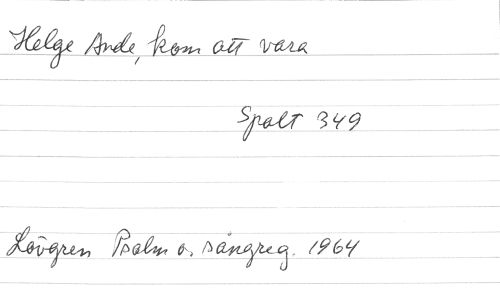 Helge Ande, kom att vara
Spalt 349
Lövgren Psalm o. sångreg. 1964